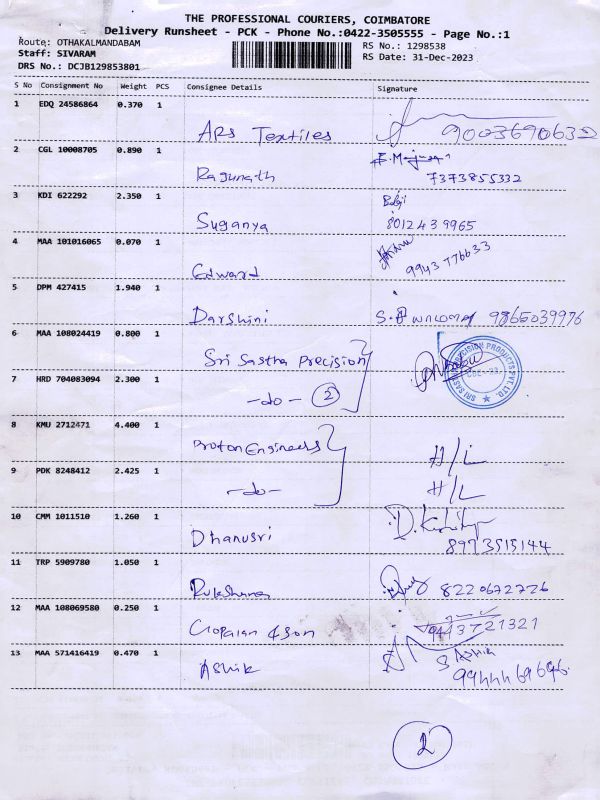 THE PROFESSIONAL COURIERS, COIMBATORE
Delivery Runsheet - PCK - Phone No.:0422-3505555 - Page No.:1
Route: OTHAKALMANDABAM
RS No.: 1298538
Staff: SIVARAM
RS Date: 31-Dec-2023
DRS No.: DCJB129853801
S No Consignment No Weight PCS Consignee Details Signature
1 EDQ 24586864 0.370 1
ARS Textiles 9003690632
2 CGL 10008705 0.890 1
Ragunath 7373855332
3 KDI 622292 2.350 1
Suganya 8012439965
4 MAA 101016065 0.070 1
Edward 9943776633
5 DPM 427415 1.940 1
Darshini 9865039976
6 MAA 108024419 0.800 1
Sri Sastha Precision
SRI SASTHA PRECISION PRODUCTS PVT. LTD.
7 HRD 704083094 2.300 1
-do- 2
8 KMU 2712471 4.400 1
Proton Engineers H/L
9 PDK 8248412 2.425 1
-do- H/L
10 CMM 1011510 1.260 1
Dhanusri 8973515144
11 TRP 5909780 1.050 1
Rukshana 8220672726
12 MAA 108069580 0.250 1
Gopalan & Son 9443721321
13 MAA 571416419 0.470 1
Ashik S Ashik
2